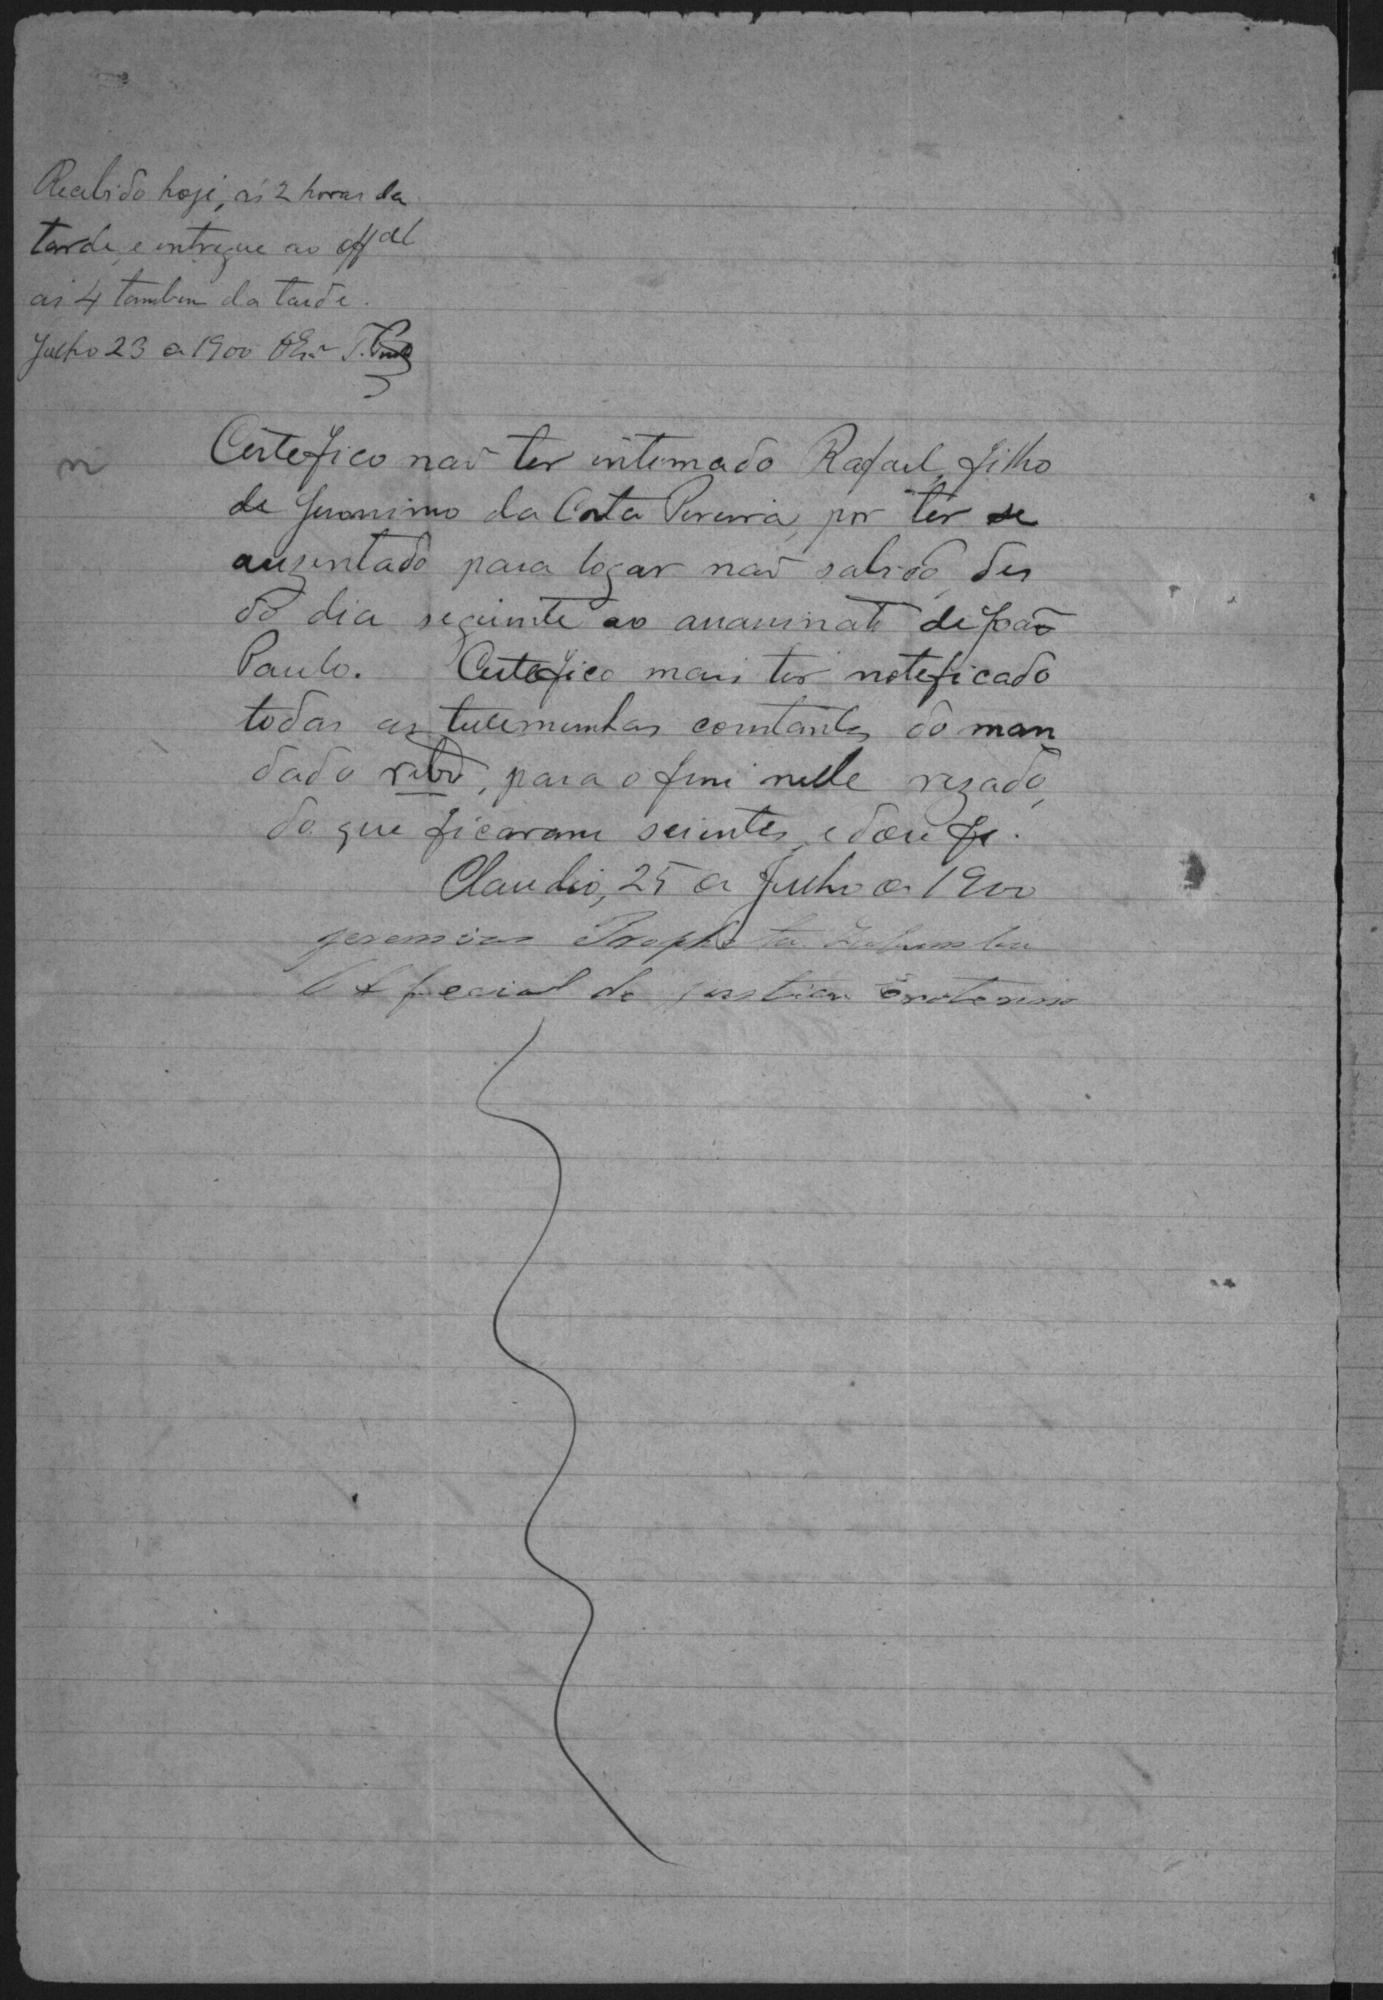 Recebido hoje, ás 2 horas da
tarde, e entregue ao offal
as 4 tambem da tarde.
Julho 23 de 1900 O Esm
Certefico naõ ter intemado Rafael, filho
de Jeronimo da Costa Pereira, por ter se
auzentado para logar naõ sabido, des
do dia seguinte ao assassinato de Joaõ
Paulo. Certefico mais ter noteficado
todas as testemunhas constantes do man
dado retro, para o fim nelle rezado,
do que ficaram scientes, e dou fé.
Claudio, 25 de Julho de 1900
geremias Propheta
Offecial de justica